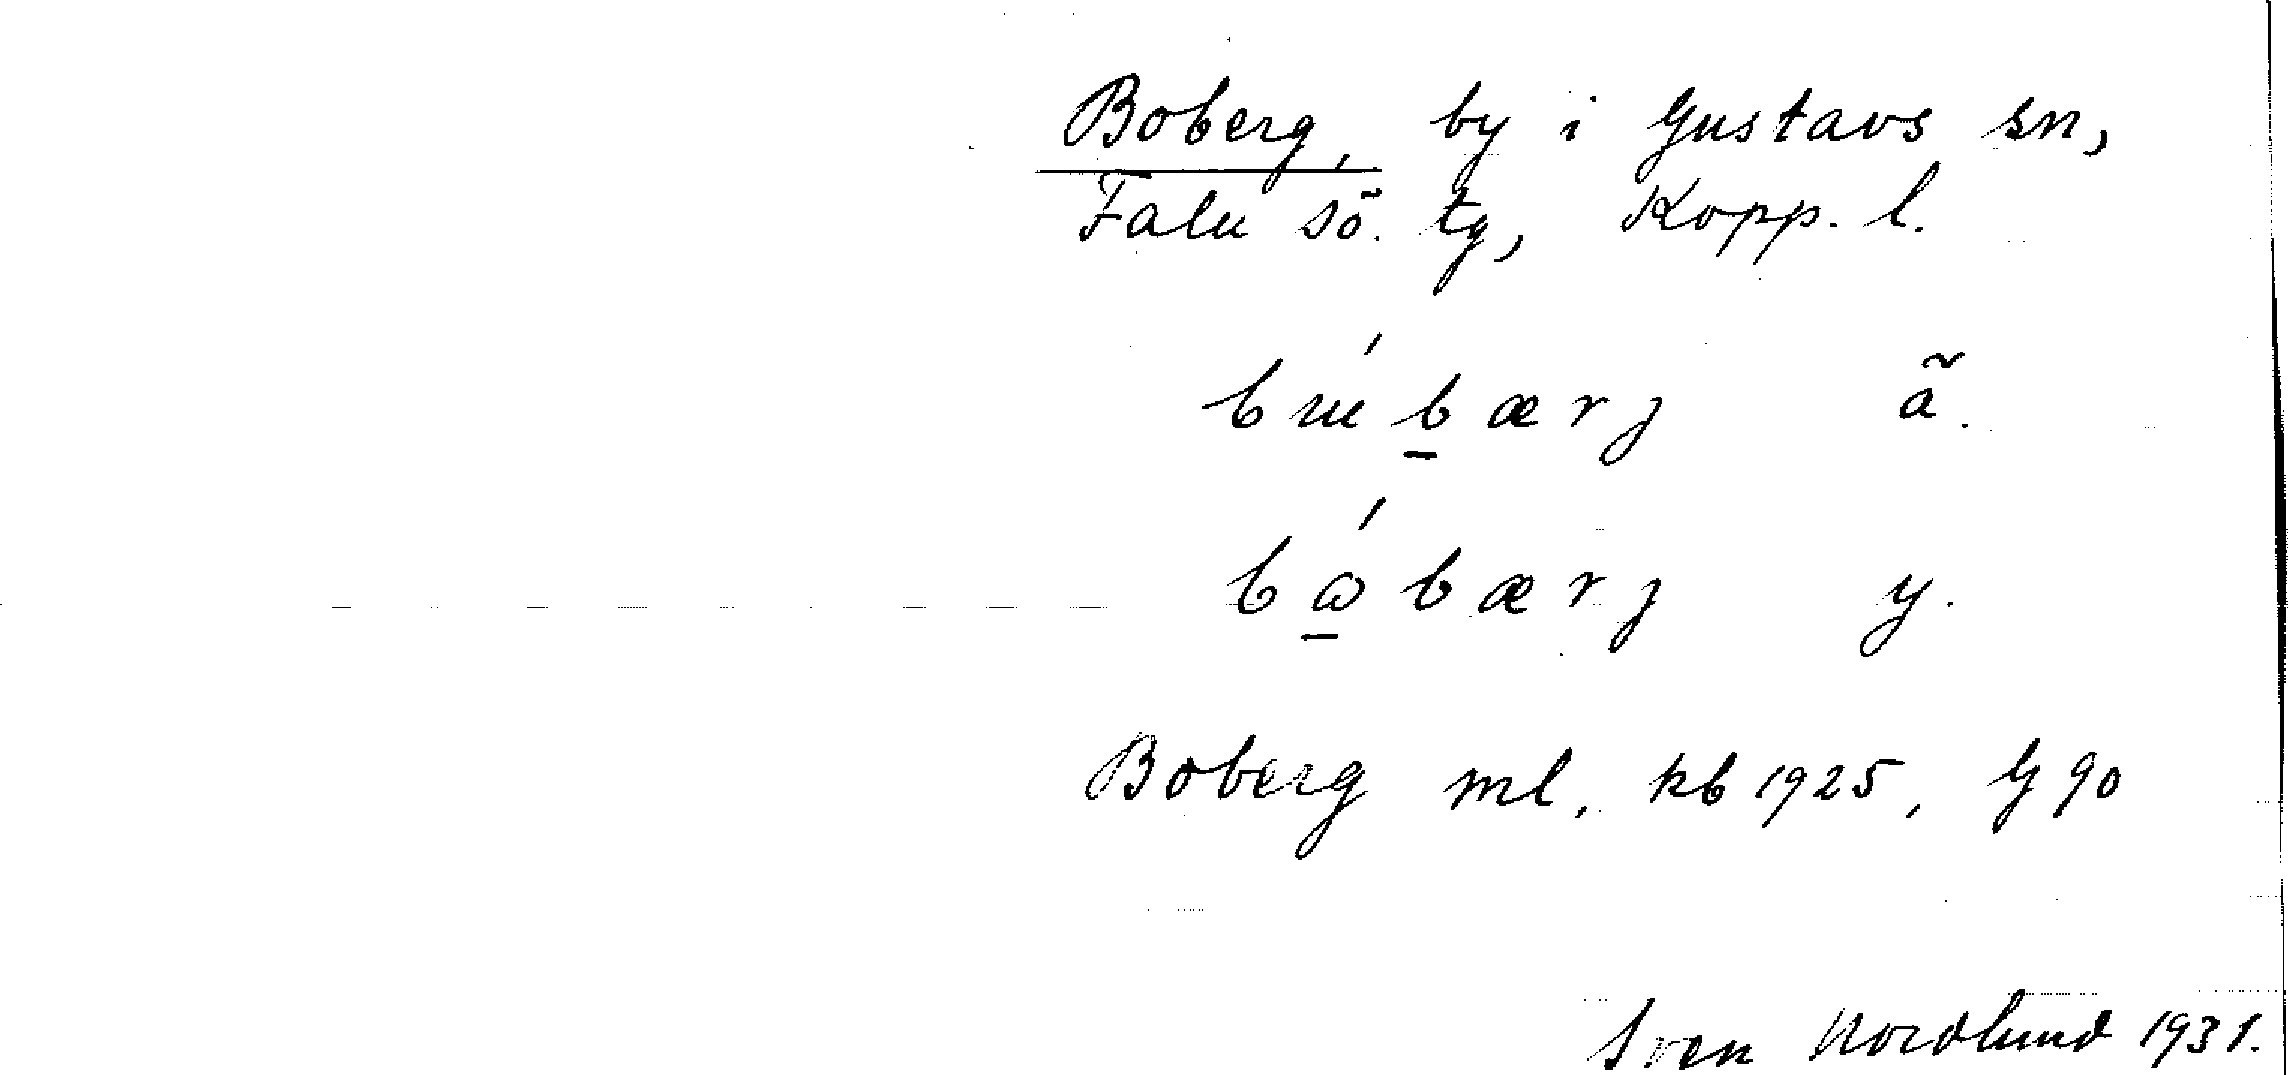 Boberg, by i Gustavs sn,
Falu sö. tg, Kopp. l.
bu̇́b̲ærj ä̃.
bώ̲bærj y.
Boberg ml, kb 1925, G 90
Sven Nordlund 1931.